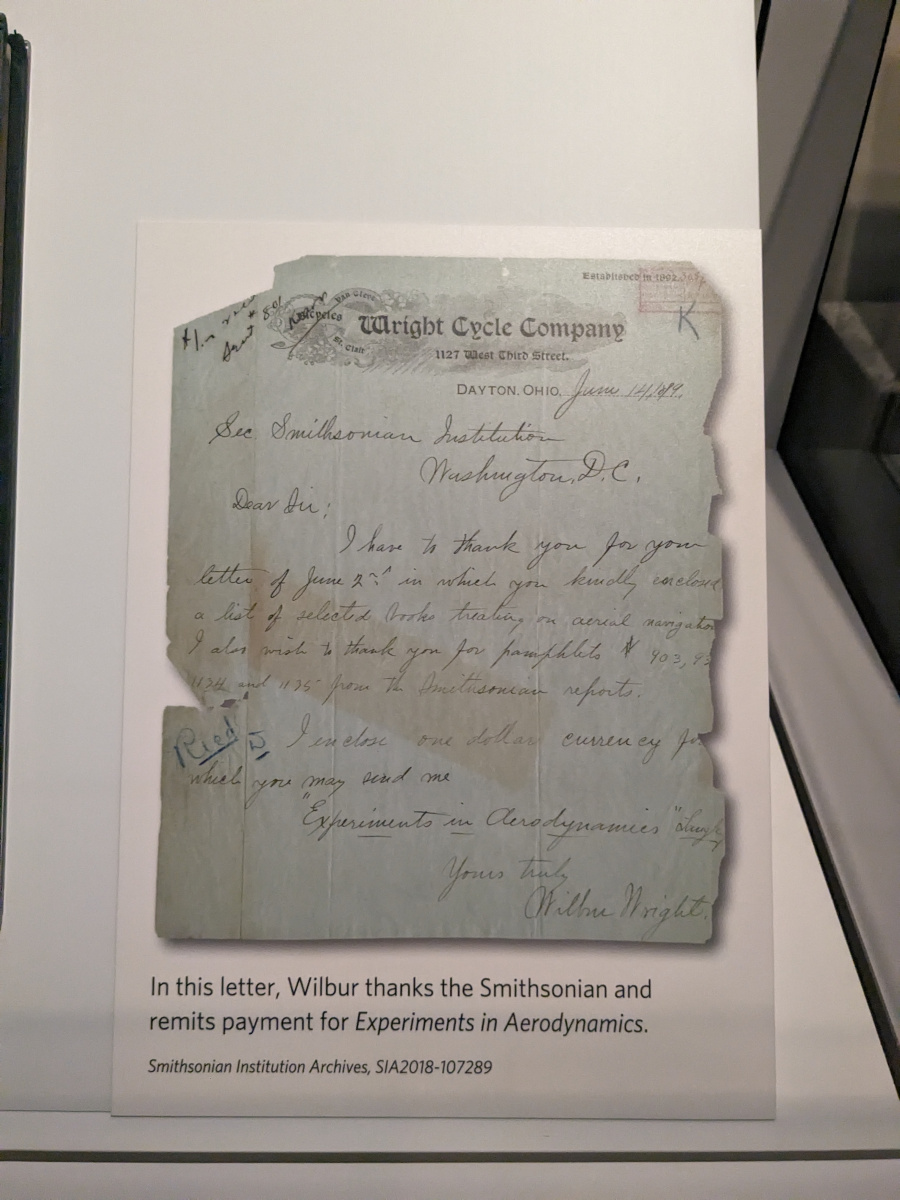 Established in 1892.
K
Van Cleve
Bicycles
St. Clair
Wright Cycle Company
1127 West Third Street.
DAYTON, OHIO, June 14/99.
Sec Smithsonian Institution
Washington, D.C.
Dear Sir;
I have to thank you for your
letter of June 2nd in which you kindly enclosed
a list of selected books treating on aerial navigation
I also wish to thank you for pamphlets # 903, 93
1134 and 1135 from the Smithsonian reports.
Rec'd
I enclose one dollar currency for
which you may send me
"Experiments in Aerodynamics"
Yours truly
Wilbur Wright.
In this letter, Wilbur thanks the Smithsonian and
remits payment for Experiments in Aerodynamics.
Smithsonian Institution Archives, SIA2018-107289